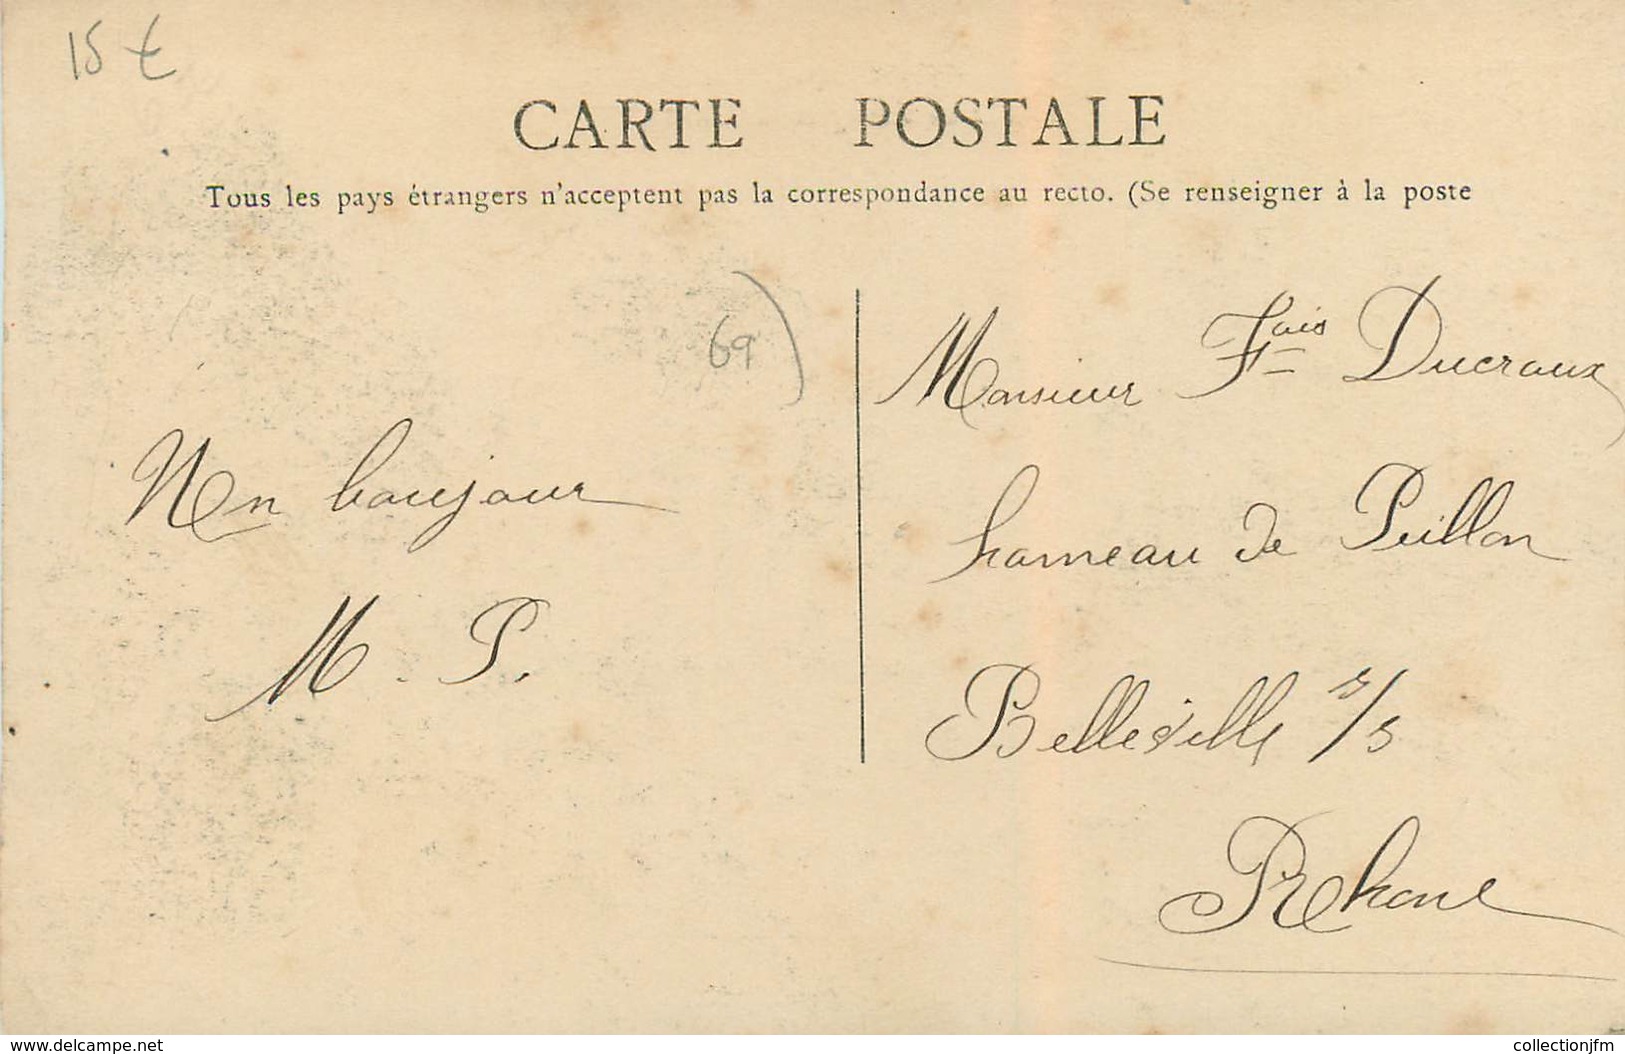 15 €
CARTE POSTALE
Tous les pays étrangers n'acceptent pas la correspondance au recto. (Se renseigner à la poste
69)
Un bonjour
M. P.
Monsieur Fçois Ducroux
hameau de Peillon
Belleville s/S
Rhone
www.delcampe.net
collectionjfm